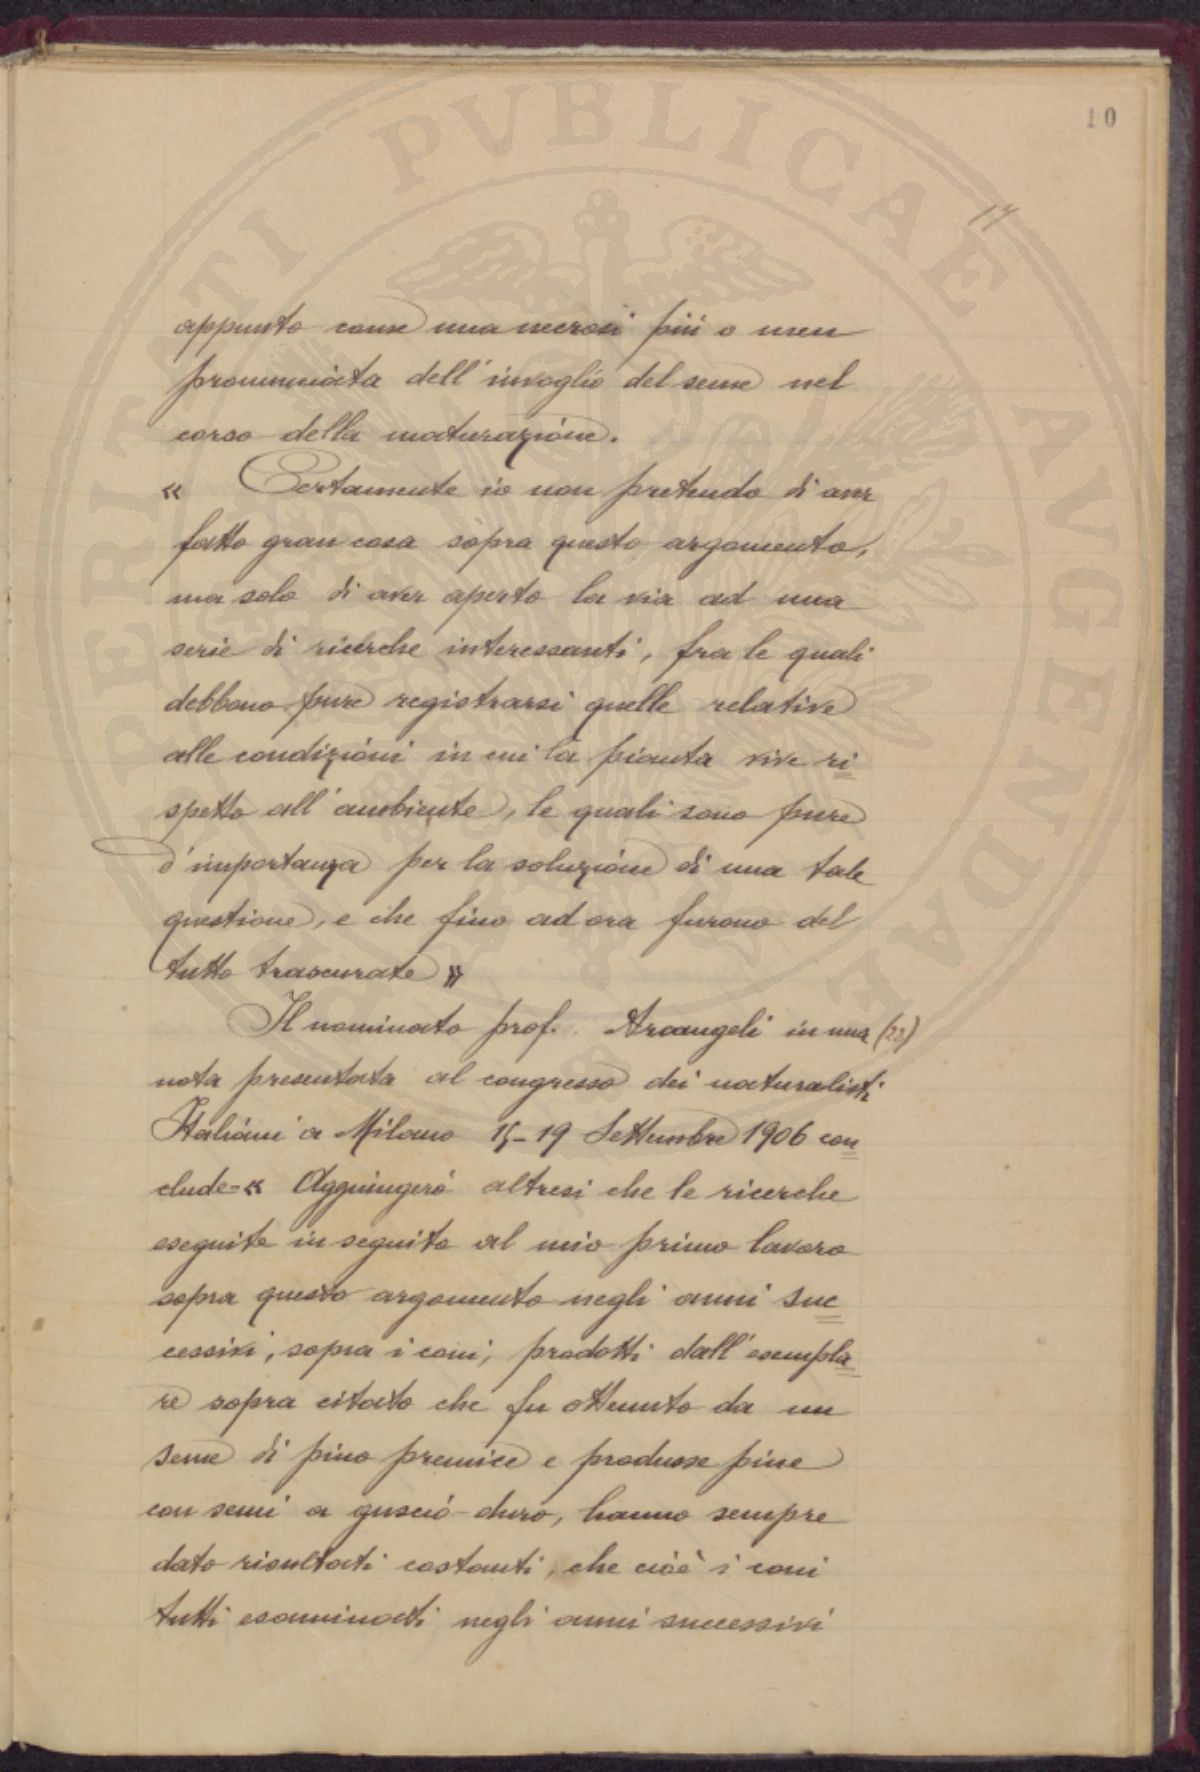 10
17
appunto come una necrosi più o men
pronunciata dell'invoglio del seme nel
corso della maturazione.
« Certamente io non pretendo di aver
fatto gran cosa sopra questo argomento,
ma solo di aver aperto la via ad una
serie di ricerche interessanti, fra le quali
debbono pure registrarsi quelle relative
alle condizioni in cui la pianta vive ri
spetto all'ambiente, le quali sono pure
d'importanza per la soluzione di una tale
questione, e che fino ad ora furono del
tutto trascurate »
Il nominato prof. Arcangeli in una (22)
nota presentata al congresso dei naturalisti
Italiani a Milano 15-19 Settembre 1906 con
clude=« Aggiungerò altresi che le ricerche
eseguite in seguito al mio primo lavoro
sopra questo argomento negli anni suc
cessivi, sopra i coni, prodotti dall'esempla
re sopra citato che fu ottenuto da un
seme di pino premice e produsse pine
con semi a guscio duro, hanno sempre
dato risultati costanti, che cioè i coni
tutti esaminati negli anni successivi
PERITATI PVBLICAE AVGENDAE